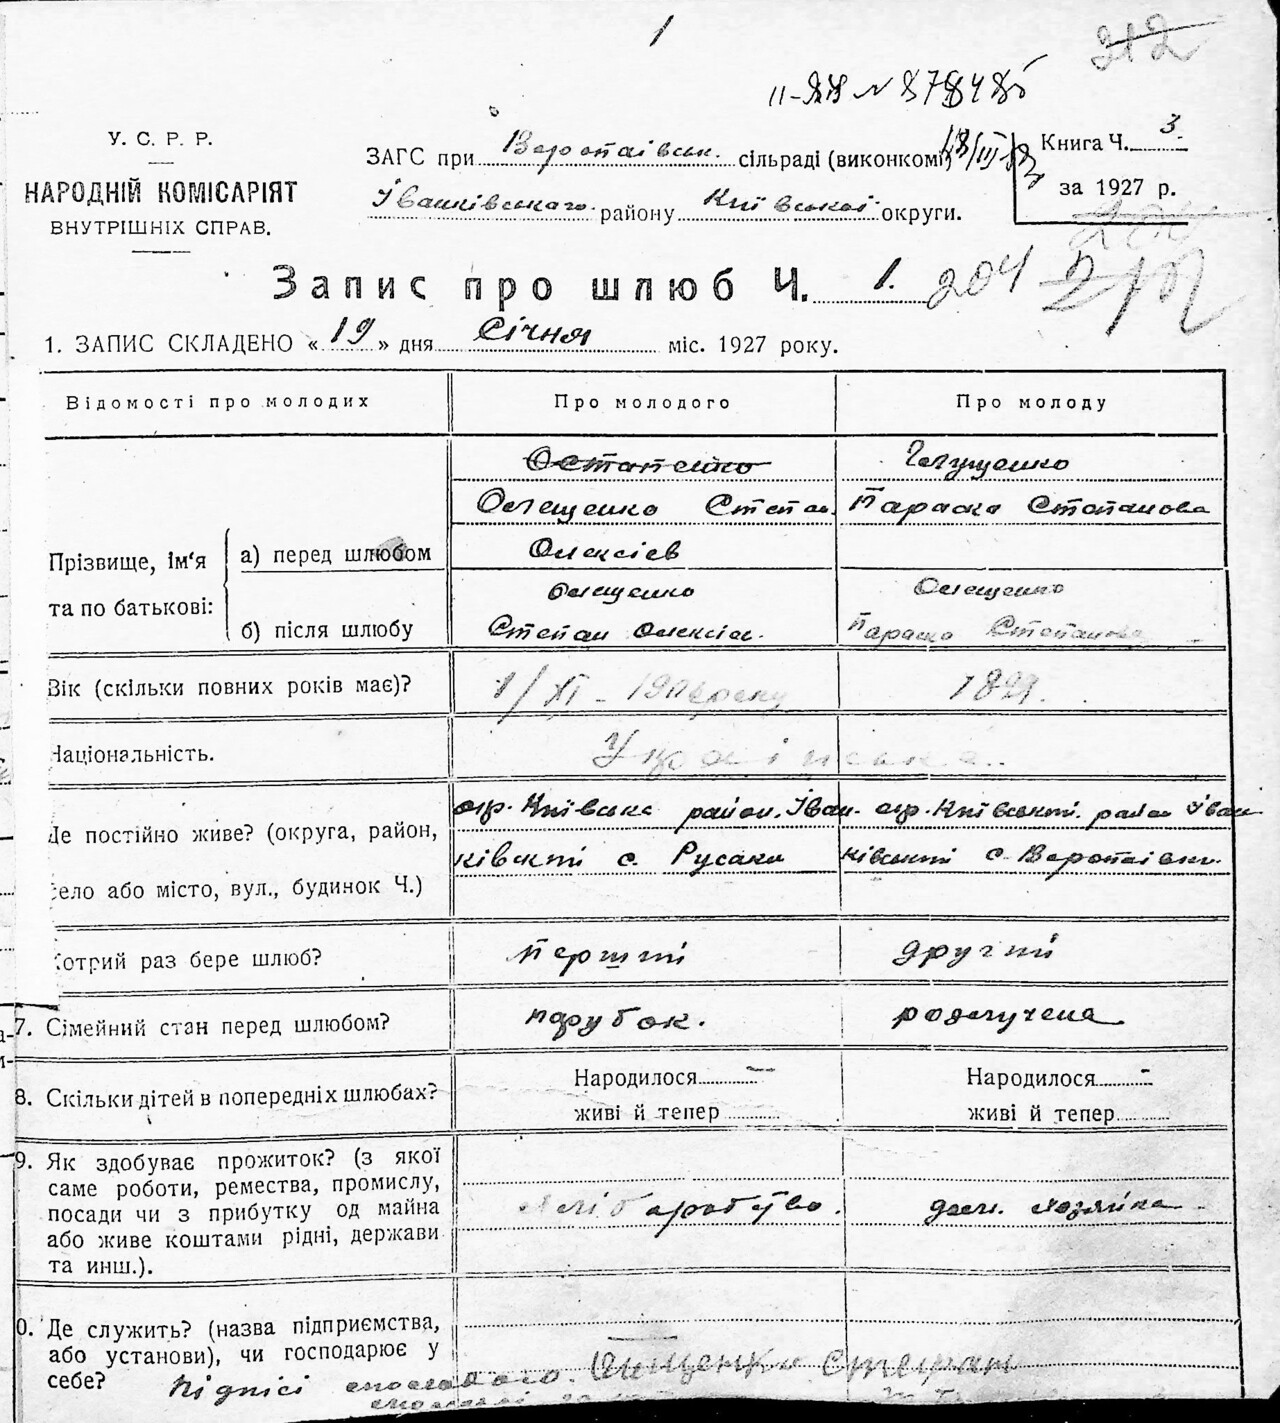 1
212
11-ВИ № 878485
У. С. Р. Р.
НАРОДНІЙ КОМІСАРІЯТ
ВНУТРІШНІХ СПРАВ.
ЗАГС при Воропаївськ. сільраді (виконкомі)
Іванківського району Київської округи.
Книга Ч. 3.
за 1927 р.
Запис про шлюб Ч. 1. 204
1. ЗАПИС СКЛАДЕНО « 19 » дня Січня міс. 1927 року.
Відомості про молодих Про молодого Про молоду
Прізвище, ім'я та по батькові:
а) перед шлюбом
Остапенко
Олещенко Степан
Олексієв
Параска Степанова
б) після шлюбу
Олещенко
Степан Олексієв.
Олещенко
Параска Степанова
Вік (скільки повних років має)?
1/XI - 1899.
Національність.
Українська.
Де постійно живе? (округа, район,
село або місто, вул., будинок Ч.)
окр. Київська район. Іван-
ківський с. Русаки
окр. Київський. район Іван-
ківський с.
Котрий раз бере шлюб? перший другий
7. Сімейний стан перед шлюбом? парубок. розлучена
8. Скільки дітей в попередніх шлюбах?
Народилося — живі й тепер
Народилося - живі й тепер
9. Як здобуває прожиток? (з якої
саме роботи, ремества, промислу,
посади чи з прибутку од майна
або живе коштами рідні, держави
та инш.).
хліборобство. дом. хозяйка
0. Де служить? (назва підприємства,
або установи), чи господарює у
себе?
Підпісі Олещенко Степан